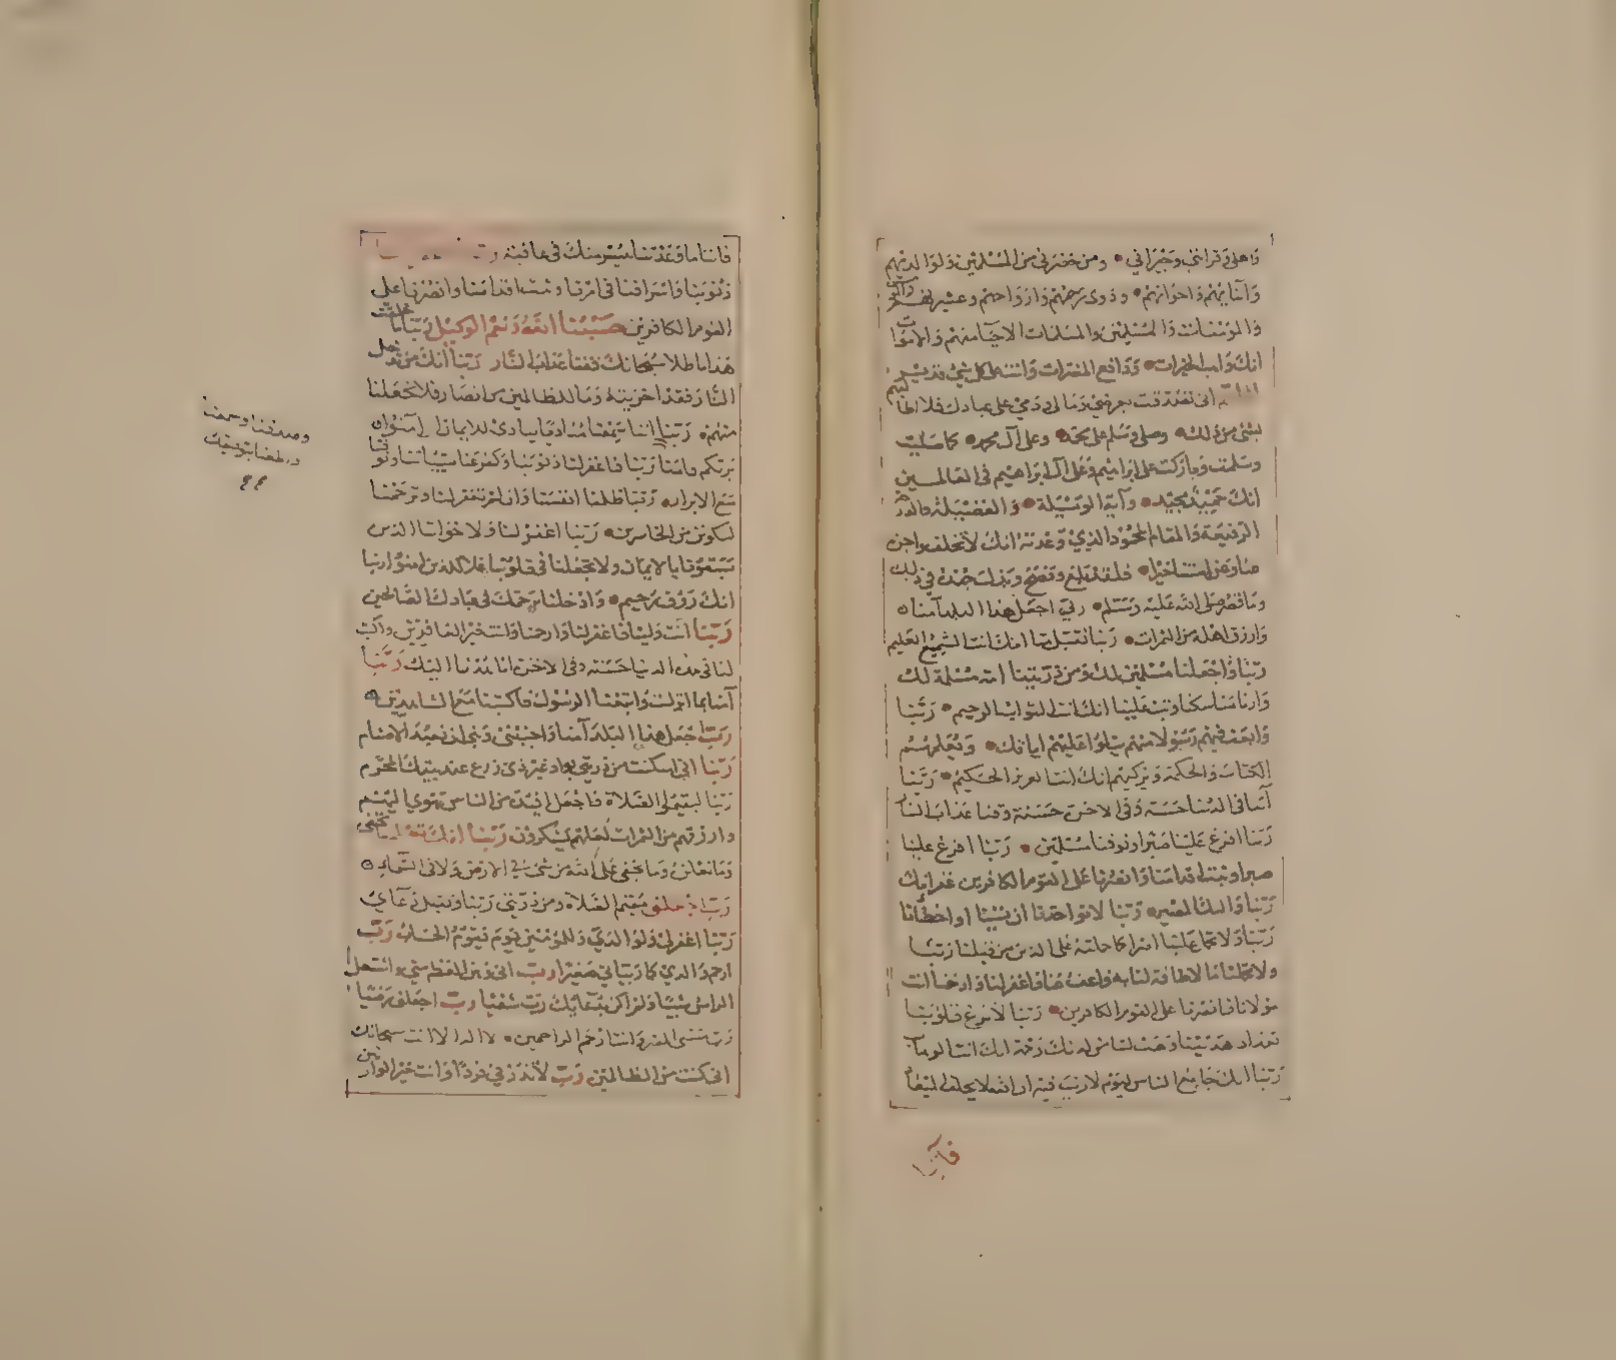 وَاهلى وَقراباتى وَجيْرانِي ومن حضرنى من المُسْلمين وَلوَالديهم
وَآبائهم وَاخوانهم وذوى رحمهم وَازوَاجهم وعشيرتهم
وَالمؤمنات وَالمُسْلمينَ والمسلمات الاحيَاء منهم وَالاموَات
انك وَاهب الخيرات وَدَافع المضرات وَانت على كل شئ قدير
انى تصدقت بعرضى وَمَالى وَدَمِي على عبادك فلا اطالبهم
بشئ من ذلك وصلى وَسَلم على محمد وعلى آل محمد كما صَليت
وسَلمت وَبَاركت على ابرَاهيم وَعَلى آل ابرَاهيم فى العَالمين
انك حَمِيْد مجيْد وآته الوَسيْلة وَالفضيْلة والدرجة
الرفيعَة وَالمقام المحمُوْد الذِيْ وَعَدتهُ انك لا تخلف
فلقد بلغ وَنصَح وبذل جهدهُ في ذلك
وَمَا قصّر صلى الله عَليْه وَسَلم رب اجعَل هذا البلد آمنا
وَارزق اهْله من الثمرات رَبنا تقبل منا انك انت السَميْع العَليم
ربنا وَاجْعَلنا مُسْلمَين لك وَمن ذرّيتنا امة مُسْلمة لك
وَارنا مَناسكنا وَتبْ عَليْنا انك انت التوّاب الرحيم رَبّنا
وَابعَث فيهم رَسُوْلا منهم يتلوُا عَليْهم اياتك وَيُعَلمهُمُ
الكتَابَ وَالحكمَة وَيزكيهم انك انت العَزيز الحَكيمُ رَبّنا
آتنا فى الدُنيا حَسَنة وَفى الاخرة حَسَنَة وَقنا عَذابَ النار
رَبنا افرغ عَليْنا صَبْرا وَتوفنا مُسْلمين رَبّنا افرغ علينا
صبرا وثبت اقدامَنا وَانصُرنا عَلى القوْم الكافرين غفرانك
رَبّنا وَاليك المصير رَبّنا لا تؤاخذنا ان نسيْنا او اخطأنا
رَبّنا وَلا تحمل عَليْنا اصْرا كما حملته عَلى الذين من قبلنا رَبّنا
ولا تحمّلنا ما لا طاقة لنا به واعف عنا وَاغفرلنا وَارحمنا انت
مَوْلانا فانصُرنا على القوْم الكافرين رَبّنا لا تزغ قلوْبَنا
بَعْد اذ هَديْتنا وَهَبْ لنا من لدنك رَحمَة انك انت الوهاب
رَبّنا انك جَامع الناس ليَوْم لا رَيْبَ فيه ان الله لا يخلف الميْعاد
فآتنا
فاتنا ما وَعَدْتنا يُسْر منك فى عافية
ذنُوْبنا وَاسْرَافنا فى امْرنا وثبت اقدَامَنا وانصُرنا على
القوْم الكافريْن حَسْبُنا اللهُ وَنعْمَ الوكيْل رَبّنا ما خلقت
هَذا باطلا سُبْحَانك فقنا عَذابَ النَّار رَبّنا انكَ من تدخل
النَّارَ فقدْ اخزيْتهُ وَمَا للظالمين من انصَار فلا تجْعَلنا
منهم رَبّنا اننا سَمِعْنا مُنادِيًا ينادىْ للايمَان ان آمنُوْا
برَبكم فآمَنا رَبّنا فاغفرلنا ذنوْبَنا وَكفر عَنا سَيّئاتنا وَتوفنا
مَعَ الابرار رَبنا ظلمْنا انفسَنا وَان لم تغفر لنا وَترحَمْنا
لنكونن من الخاسرين رَبنا اغفرْ لنا وَلاخوَاننا الذين
سَبَقوْنا بالايمَان ولا تجعَلْ فى قلوْبنا غلا للذين امنوُا ربنا
انكَ رَؤف رَحيم وَادْخلنا برَحمتك فى عبَادكَ الصَالحين
رَبّنا انت وَلينا فاغفرلنا وَارحمنا وَانت خيْر الغافريْن واكتب
لنا فى هذه الدنيا حَسَنة وفى الاخرة انا هُدْنا اليْك رَبّنا
آمَنا بما انزلتَ وَاتبعْنا الرسُوْلَ فاكتبْنا مَعَ الشاهديْن
رَبّ اجْعَل هذا البَلدَ آمنا وَاجنبْنىْ وَبَنى ان نعبُدَ الاصنام
رَبّنا انى اسكنت من ذريتي بوَاد غيْر ذىْ زرع عندَ بيتك المحرّم
رَبنا ليقيْموا الصَّلاة فاجْعَل افئدَة من الناس تهْوي اليْهم
وارزقهم من الثمرات لعَلهم يَشكروْن رَبّنا انك تعْلم ما نخفى
وَمَا نعْلن وَما يخفى عَلى الله من شئ في الارْض وَلا فى السَّمَاء
رَبّ اجعلنى مُقيْمَ الصَلاة ومن ذرّيتى رَبّنا وَتقبل دعَائي
رَبّنا اغفرلىْ وَلوَالديَّ وَللمُؤمنين يَوْمَ يَقوْمُ الحسَابُ رَبّ
ارحمهما كما رَبّيَانى صَغيرا رَبّ انى وَهَنَ العَظم مني واشتعل
الراس شيْبًا وَلم اكن بدعَائكَ رَبّ شقيًّا ربّ اجعَلنى رَضيّا
رَبّ مَسّنى الضر وَانت ارْحَم الراحمين لا اله الا انت سبحانك
انى كنت من الظالميْن رَبّ لا تذرْني فرْدًا وَانت خيْر الوارثين
وصدقنا وسمعنا
واطعنا بتوفيقك